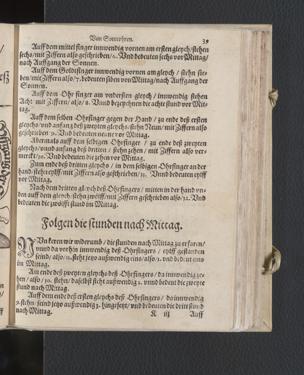 Von Sonnvhren. 39
Auff dem mittel finger inwendig vornen am ersten gleych/ stehen
sechs/ mit Ziffern also geschrieben/ 6. Vnd bedeuten sechs vor Mittag/
nach Auffgang der Sonnen.
Auff dem Goldtfinger inwendig vornen am gleych / stehn sie-
ben/ mit Ziffern also/ 7. bedeuten siben vor Mittag/ nach Auffgang der
Sonnen.
Auff dem Ohrfinger am vordersten gleych/ inwendig stehen
Acht mit Ziffern/ also/ 8. Vnnd bezeychnen die achte stund vor Mit-
tag.
Auff dem selben Ohrfinger gegen der Hand / zu ende deß ersten
gleychs/ vnd anfang deß zweyten gleychs/ stehn Neun/ mit Ziffern also
geschrieben 9. Vnd bedeuten neune vor Mittag.
Abermals auff dem selbigen Ohrfinger / zu ende deß zweyten
gleychs/ vnd anfang deß dritten / stehn zehen/ mit Ziffern also ver-
merckt/ 10. Vnd bedeuten die zehen vor Mittag.
Zum ende deß dritten gleychs / in dem selbigen Ohrfinger an der
hand/ stehn eylff/ mit Ziffern also geschrieben/ 11. Vnnd bedeuten eylff
vor Mittag.
Nach dem dritten gleych deß Ohrfingers/ mitten in der hand vn-
den auff dem gleych/ stehen zwölff/ mit Ziffern geschrieben also/ 12. Vnd
bedeuten die zwölffte stund im Mittag.
Folgen die stunden nach Mittag.
NVn keren wir widerumb / die stunden nach Mittag zu erfaren/
vnnd da vorhin innwendig deß Ohrfingers / eylff gestanden
seind/ also/ 11. steht jetzo außwendig eins/ also/ 1. vnd bedeut eins
im Mittag.
Am ende deß zweyten gleychs deß Ohrfingers/ da inwendig ze-
hen / also/ 10. stehen/ daselbst steht außwendig 2. vnnd bedeut die zweyte
stund nach Mittag.
Auff dem ende deß ersten gleychs deß Ohrfingers/ da innwendig
9. stehen sind/ steht jetzo außwendig 3. hingesetzt/ vnd bedeut die dritt stund
nach Mittag.
K iij Auff